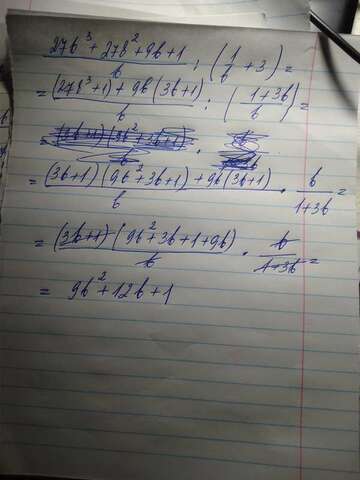 (27b³ + 27b² + 9b + 1)/b : (1/b + 3) =
= ((27b³ + 1) + 9b (3b + 1))/b : ((1 + 3b)/b) =
= ((3b + 1) (9b² + 3b + 1) + 9b (3b + 1))/b · b/(1 + 3b) =
= ((3b + 1) (9b² + 3b + 1 + 9b))/b · b/(1 + 3b) =
= 9b² + 12b + 1